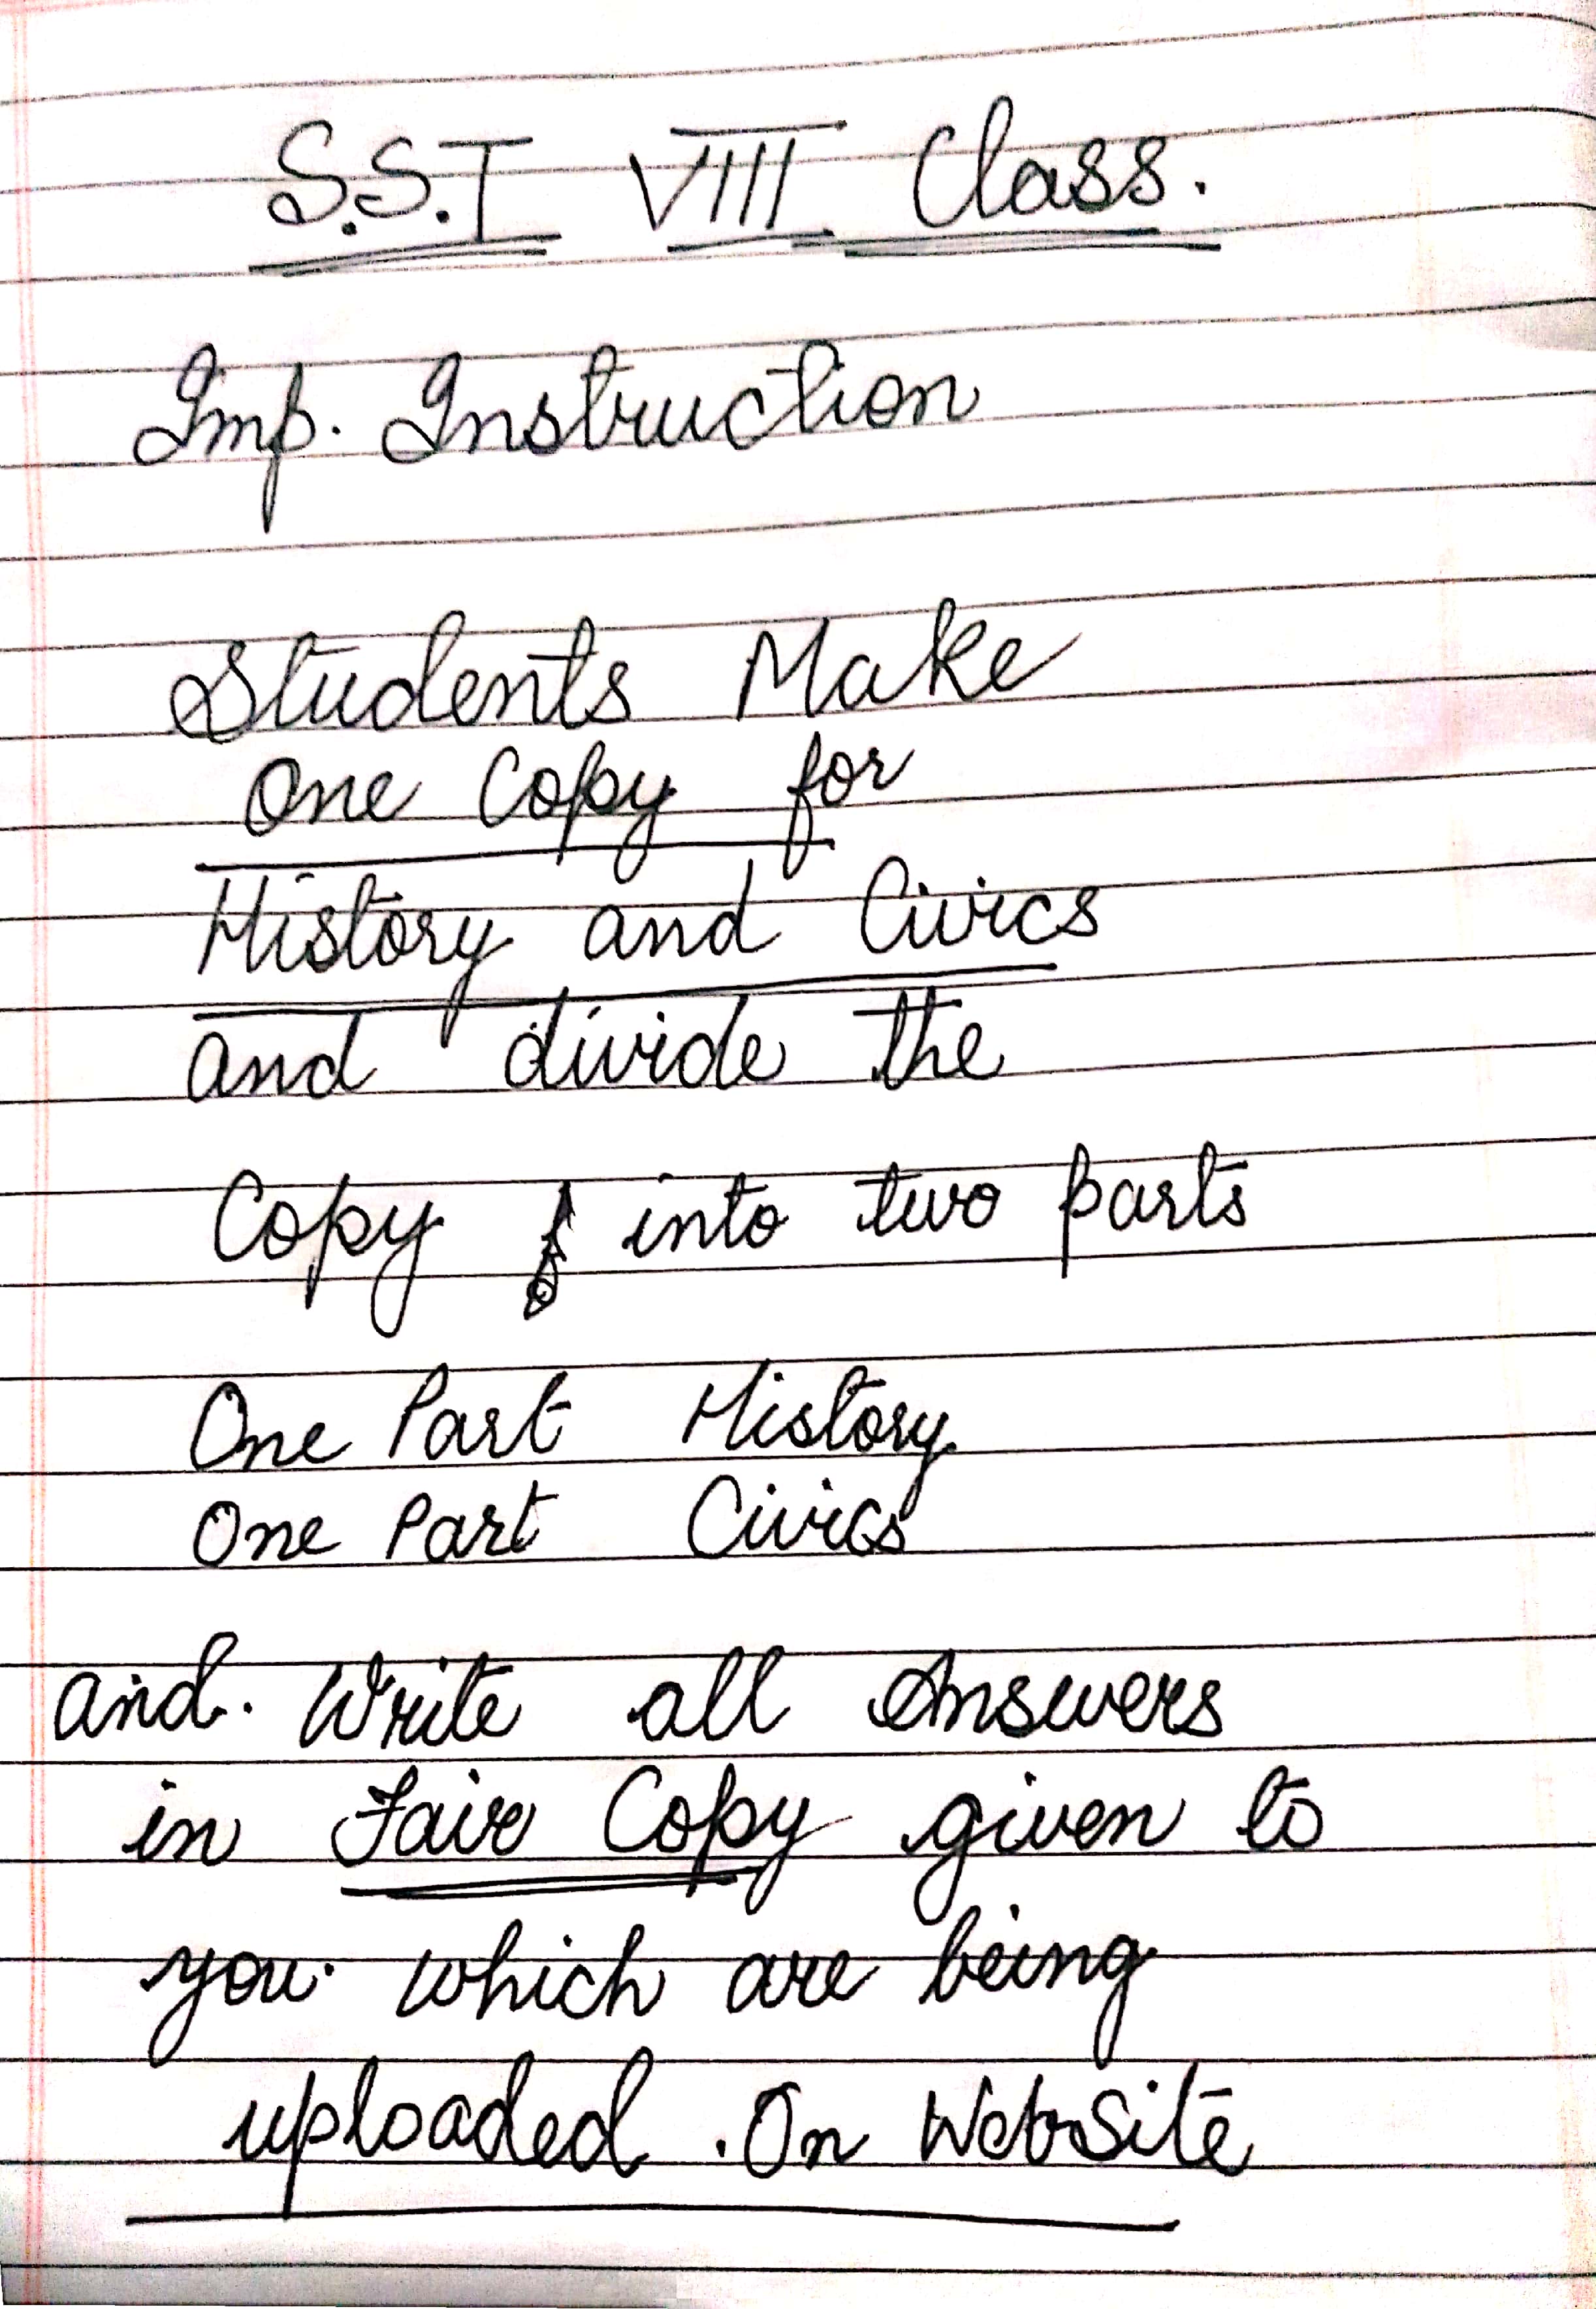 S.S.T VIII Class.
Imp. Instruction
Students Make
One Copy for
History and Civics
and divide the
Copy into two parts
One Part History
One Part Civics
and. Write all Answers
in Fair Copy given to
you. which are being
uploaded . On Website